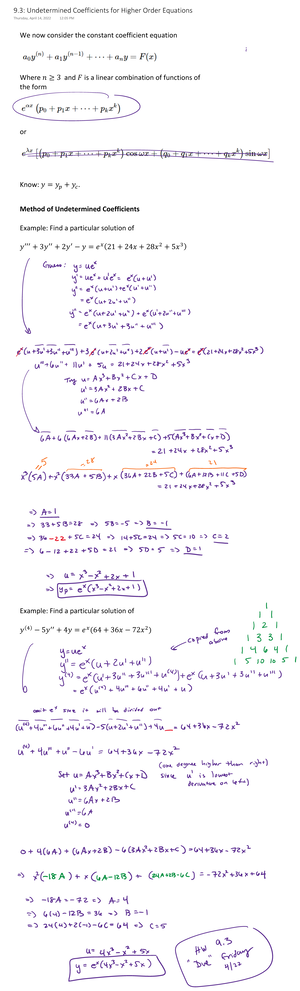 9.3: Undetermined Coefficients for Higher Order Equations
Thursday, April 14, 2022 12:45 PM
We now consider the constant coefficient equation
a₀y⁽ⁿ⁾ + a₁y⁽ⁿ⁻¹⁾ + ··· + aₙy = F(x)
Where n ≥ 3 and F is a linear combination of functions of
the form
e^{αx} (p₀ + p₁x + ··· + pₖx^k)
or
e^{λx} [(p₀ + p₁x + ··· + pₖx^k) cos ωx + (q₀ + q₁x + ··· + qₖx^k) sin ωx]
Know: y = yₚ + y꜀.
Method of Undetermined Coefficients
Example: Find a particular solution of
y''' + 3y'' + 2y' − y = eˣ(21 + 24x + 28x² + 5x³)
Guess: y = ueˣ
y' = ueˣ + u'eˣ = eˣ(u+u')
y'' = eˣ(u+u') + eˣ(u'+u'')
= eˣ(u+2u'+u'')
y''' = eˣ(u+2u'+u'') + eˣ(u'+2u''+u''')
= eˣ(u+3u'+3u''+u''')
eˣ(u+3u'+3u''+u''') + 3eˣ(u+2u'+u'') + 2eˣ(u+u') − ueˣ = eˣ(21+24x+28x²+5x³)
u'''+6u''+11u'+5u = 21+24x+28x²+5x³
Try u = Ax³+Bx²+Cx+D
u' = 3Ax²+2Bx+C
u'' = 6Ax+2B
u''' = 6A
6A+6(6Ax+2B)+11(3Ax²+2Bx+C)+5(Ax³+Bx²+Cx+D)
= 21+24x+28x²+5x³
5 28 24 21
x³(5A)+x²(33A+5B)+x(36A+22B+5C)+(6A+12B+11C+5D)
= 21+24x+28x²+5x³
⇒ A=1
⇒ 33+5B=28 ⇒ 5B=-5 ⇒ B=-1
⇒ 36-22+5C=24 ⇒ 14+5C=24 ⇒ 5C=10 ⇒ C=2
⇒ 6-12+22+5D=21 ⇒ 5D=5 ⇒ D=1
⇒ u = x³-x²+2x+1
⇒ yₚ = eˣ(x³-x²+2x+1)
Example: Find a particular solution of
y⁽⁴⁾ − 5y'' + 4y = eˣ(64 + 36x − 72x²)
copied from above
1
1 1
1 2 1
1 3 3 1
1 4 6 4 1
1 5 10 10 5 1
y=ueˣ
y'' = eˣ(u+2u'+u'')
y⁽⁴⁾ = eˣ(u'+3u''+3u'''+u⁽⁴⁾)+eˣ(u+3u'+3u''+u''')
= eˣ(u⁽⁴⁾+4u'''+6u''+4u'+u)
omit eˣ since it will be divided out
(u⁽⁴⁾+4u'''+6u''+4u'+u)-5(u+2u'+u'')+4u = 64+36x-72x²
u⁽⁴⁾+4u'''+u''-6u' = 64+36x-72x²
(one degree higher than right)
Set u = Ax³+Bx²+Cx+D since u' is lowest
u' = 3Ax²+2Bx+C derivative on left)
u'' = 6Ax+2B
u''' = 6A
u⁽⁴⁾ = 0
0+4(6A)+(6Ax+2B)-6(3Ax²+2Bx+C)=64+36x-72x²
⇒ x²(-18A)+x(6A-12B)+(24A+2B-6C) = -72x²+36x+64
⇒ -18A=-72 ⇒ A=4
⇒ 6(4)-12B=36 ⇒ B=-1
⇒ 24(4)+2(-1)-6C=64 ⇒ C=5
u = 4x³-x²+5x
y = eˣ(4x³-x²+5x)
HW 9.3
"Due" Friday
4/22